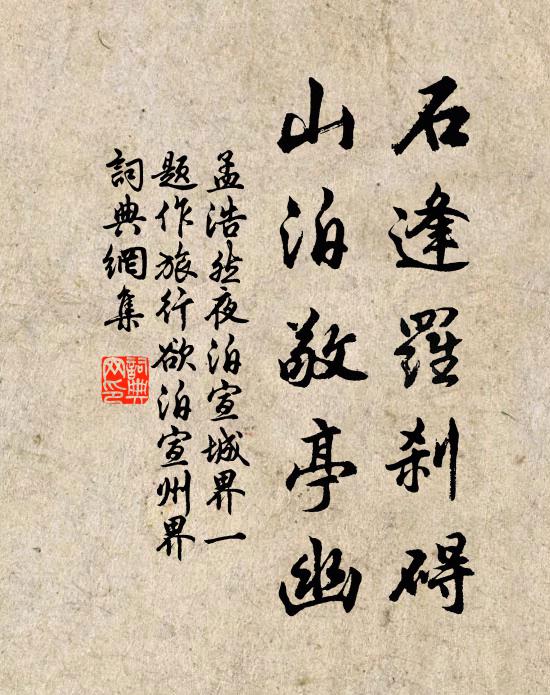 石逢羅刹碍
山泊敬亭幽
孟浩然夜泊宣城界一
题作旅行欲泊宣州界
詞典網集
詞典
网印